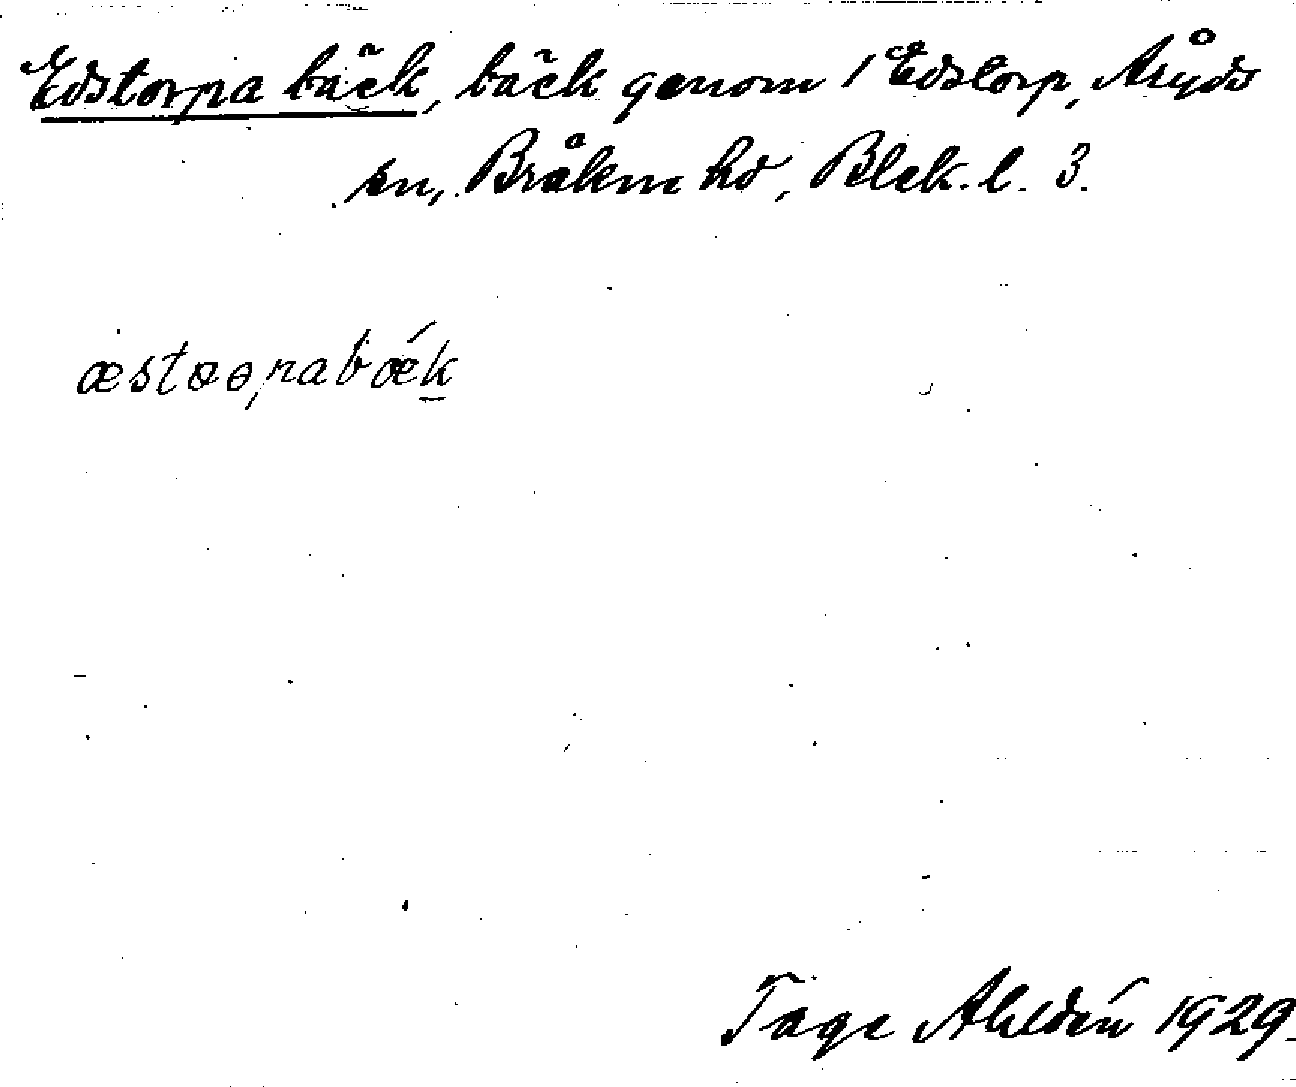 Edstorpa bäck, bäck genom 1 Edstorp, Åryds
sn, Bräkne hd, Blek. l. 3.
æstɷɵpabǽk
Tage Ahldén 1929.